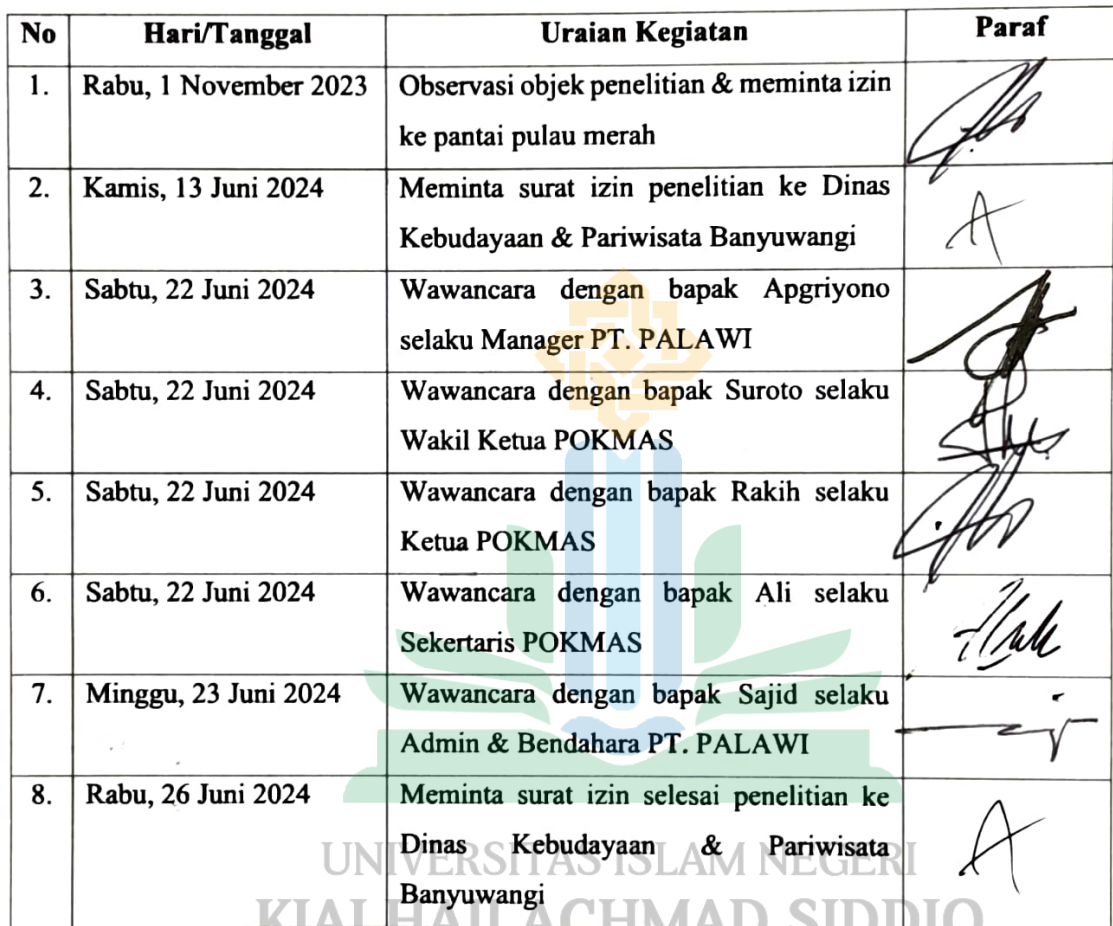 No Hari/Tanggal Uraian Kegiatan Paraf
1. Rabu, 1 November 2023 Observasi objek penelitian & meminta izin
ke pantai pulau merah
2. Kamis, 13 Juni 2024 Meminta surat izin penelitian ke Dinas
Kebudayaan & Pariwisata Banyuwangi
3. Sabtu, 22 Juni 2024 Wawancara dengan bapak Apgriyono
selaku Manager PT. PALAWI
4. Sabtu, 22 Juni 2024 Wawancara dengan bapak Suroto selaku
Wakil Ketua POKMAS
5. Sabtu, 22 Juni 2024 Wawancara dengan bapak Rakih selaku
Ketua POKMAS
6. Sabtu, 22 Juni 2024 Wawancara dengan bapak Ali selaku
Sekertaris POKMAS
7. Minggu, 23 Juni 2024 Wawancara dengan bapak Sajid selaku
Admin & Bendahara PT. PALAWI
8. Rabu, 26 Juni 2024 Meminta surat izin selesai penelitian ke
Dinas Kebudayaan & Pariwisata
Banyuwangi
UNIVERSITAS ISLAM NEGERI
KIAI HAJI ACHMAD SIDDIQ